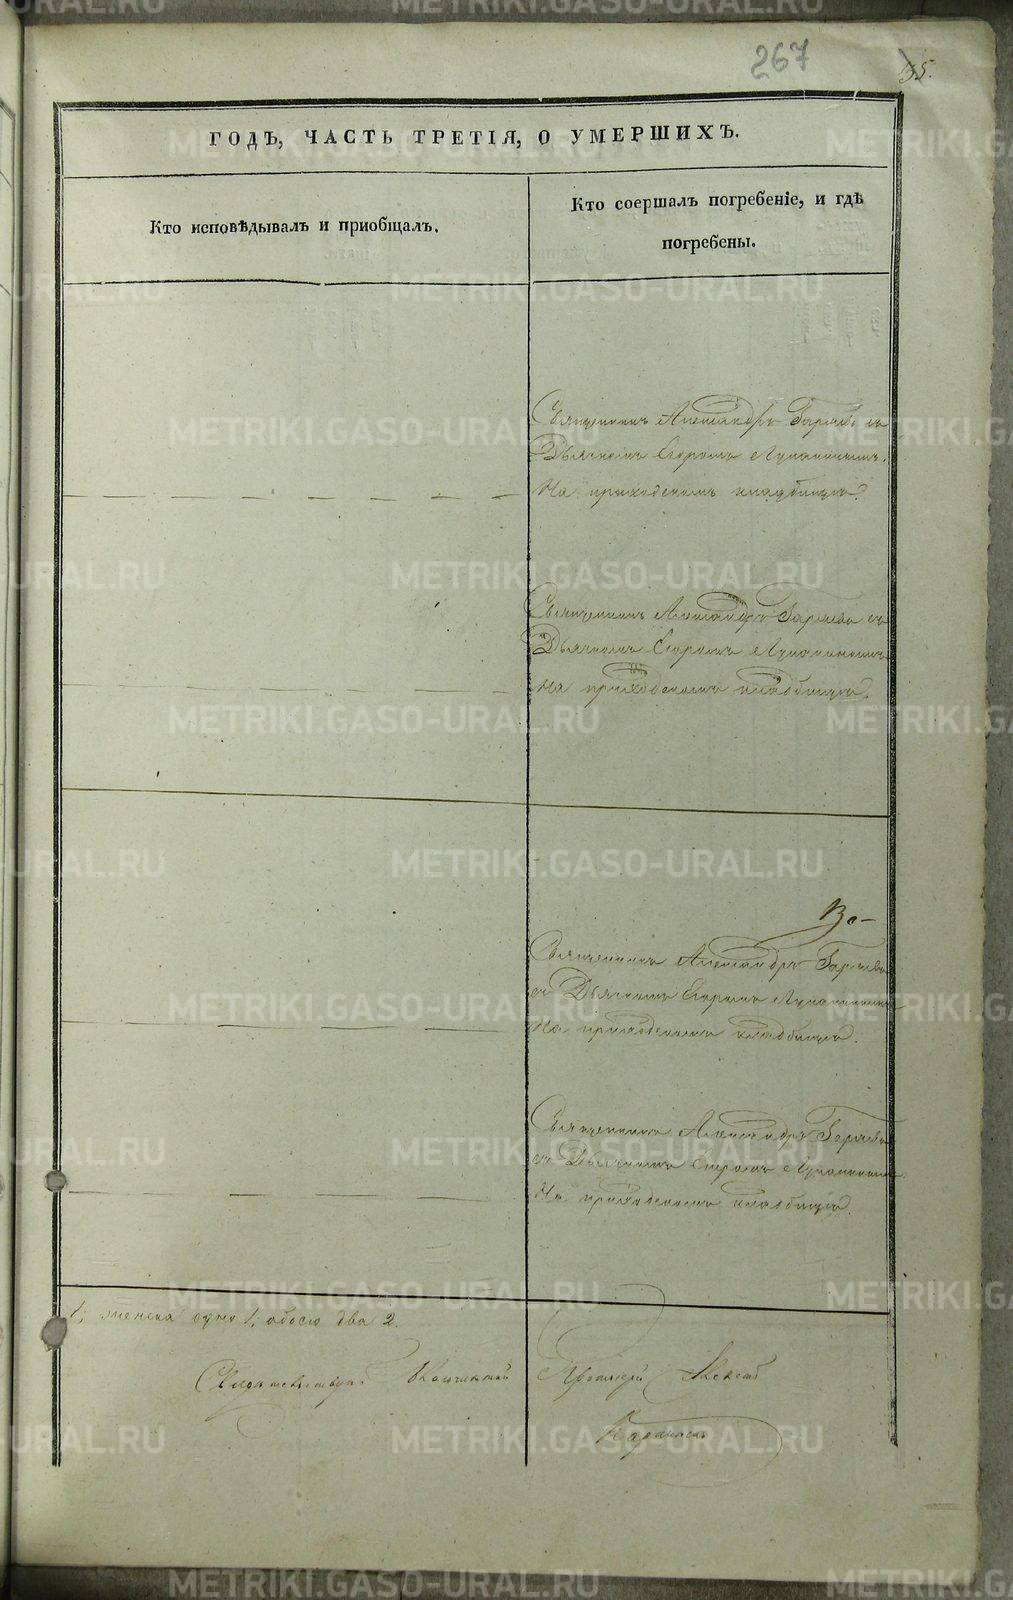 267
35.
ГОДЪ, ЧАСТЬ ТРЕТІЯ, О УМЕРШИХЪ.
Кто исповѣдывалъ и приобщалъ.
Кто соершалъ погребеніе, и гдѣ
погребены.
Священникъ Александръ Гаряевъ съ
Дьячкомъ Егоромъ Луканинымъ.
На приходскомъ кладбищѣ.
Священникъ Александръ Гаряевъ съ
Дьячкомъ Егоромъ Луканинымъ
На приходскомъ кладбищѣ.
Священникъ Александръ Гаряевъ
съ Дьячкомъ Егоромъ Луканинымъ
На приходскомъ кладбищѣ.
Священникъ Александръ Гаряевъ
съ Дьячкомъ Егоромъ Луканинымъ
На приходскомъ кладбищѣ.
1, женска одна 1, обоего два 2.
Протоіерей
METRIKI.GASO-URAL.RU